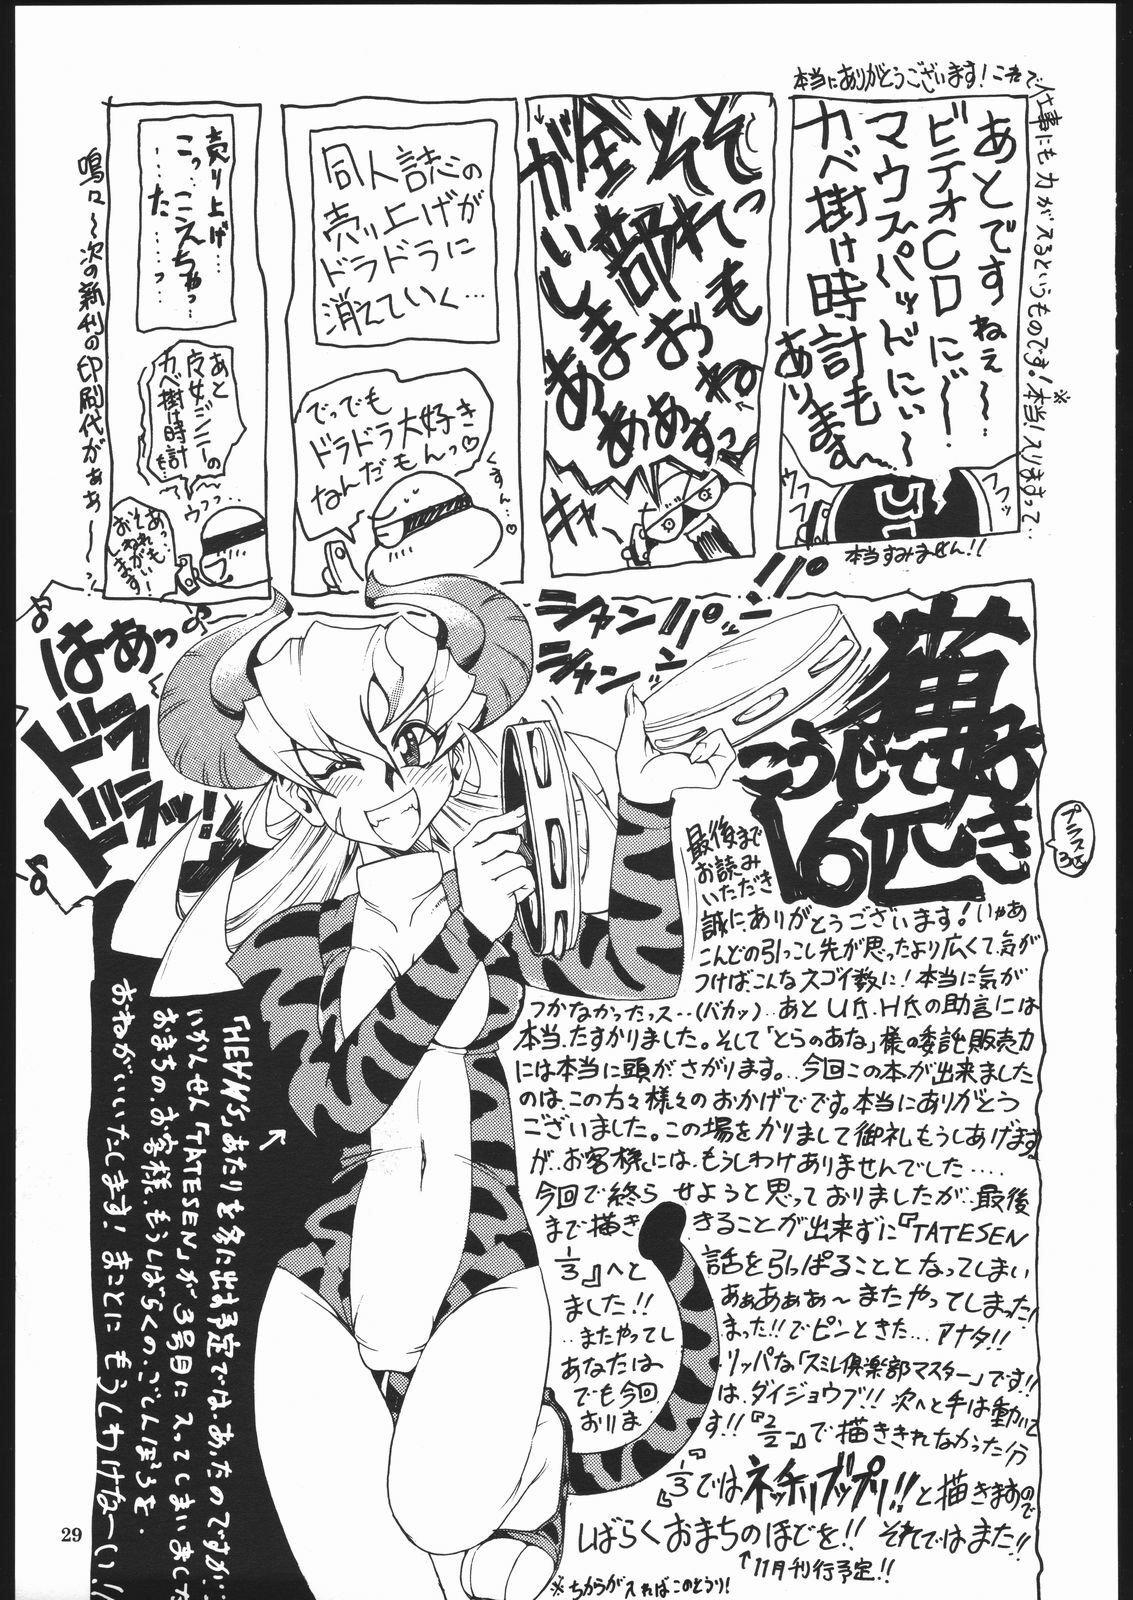 本当にありがとうございます！これで仕事にも力が入るというものです！※本当！入りまよって‥
あとですねぇ〜
ビデオCDに〜
マウスパッドにぃ〜
カベ掛け時計も
ありまぁ〜す
ウフフ
フッフッ
本当すみません！！
そそそれっも
全部おね
がいしまぁす
キャー
同人誌の
売り上げが
ドラドラに
消えていく…
でっでも
ドラドラ大好き
なんだもんっ♡
くすん…♡
売り上げ…
こっ…こえちゃっ…
……た……っ
あと
魔女ジニーの
カベ掛け時計も
ウフッ…
あっ…
それも
おねがい
します！
鳴々〜次の新刊の印刷代がぁぁ〜〜っ
はぁっ
ドラ
ドラッ！
シャン
シャン
パン
パン
猫好き
こうじて
16匹
プラス3匹
最後まで
お読み
いただき
誠にありがとうございます！いやあ
こんどの引っこし先が思ったより広くて、気が
つけばこんなスゴイ数に！本当に気が
つかなかったっス‥（バカッ）‥あとU氏、H氏の助言には
本当、たすかりました。そして「とらのあな」様の委託販売力
には本当に頭がさがります。‥今回この本が出来ました
のは、この方々様々のおかげでです。本当にありがとう
ございました。この場をかりまして御礼もうしあげます
が‥お客様には、もうしわけありませんでした‥‥
今回で終らせようと思っておりましたが‥最後
まで描ききることが出来ずに『TATESEN
1/3』へと話を引っぱることとなってしまい
ました！！あぁあぁぁ〜またやってしまった！
‥またやってしまった！！でピンときた…アナタ！！
あなたは、リッパな「スミレ倶楽部マスター」です！！
でも今回は、ダイジョウブ！！次へと手は動いて
おります！！『2/2』で描ききれなかった分
『1/3』では ネッチリブップリ！！と描きますので
しばらくおまちのほどを！！それではまた！！
↑11月刊行予定！！
※ちからが入ればこのとうり！
「HEAVN'S」あたりを多に出す予定では、あったのですが…
いかんせん「TATESEN」が3号目に入ってしまいました
おまちの、お客様、もうしばらくの、ごしんぼうを、
おねがいいたします！まことに もうしわけなーい！！
29